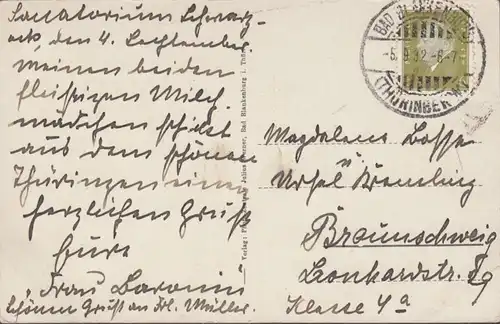 Sanatorium Schwarz-
eck, den 4. September.
Meinen beiden
fleißigen Milch-
mädchen schickt
aus dem schönen
Thüringen einen
herzlichen Gruß
Eure
"Frau Baronin"
Schönen Gruß an Frl. Müller.
Verlag: Julius Bad Blankenburg i. Thür.
BAD BLANKENBURG
-5.9.32.-6-7
(THÜRINGER W.)
Magdalena Bosse
u
Ursel Kremling
Braunschweig
Leonhardstr. 59
Klasse 4a